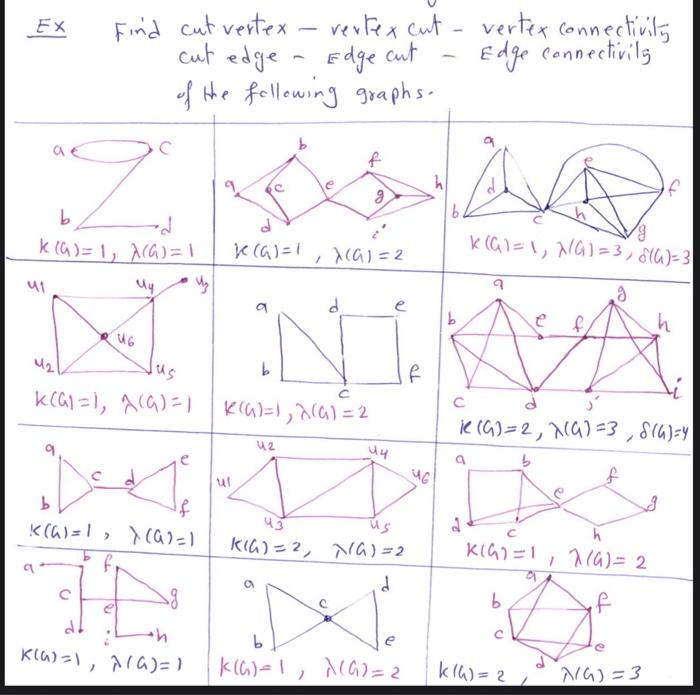 Ex Find cut vertex - vertex cut - vertex connectivity
cut edge - Edge cut - Edge connectivity
of the following graphs.
a c
b d
K(G)=1, λ(G)=1
b f
a c e g h
d i
K(G)=1, λ(G)=2
a e
d f
b c h g
K(G)=1, λ(G)=3, δ(G)=3
u1 u4 u3
u6
u2 u5
K(G)=1, λ(G)=1
a d e
b c f
K(G)=1, λ(G)=2
a g
b e f h
c d j i
K(G)=2, λ(G)=3, δ(G)=4
a e
c d
b f
K(G)=1, λ(G)=1
u2 u4
u1 u6
u3 u5
K(G)=2, λ(G)=2
a b f
e g
d c h
K(G)=1, λ(G)=2
a b f
c e g
d i h
K(G)=1, λ(G)=1
a d
c
b e
K(G)=1, λ(G)=2
a
b f
c e
d
K(G)=2, λ(G)=3